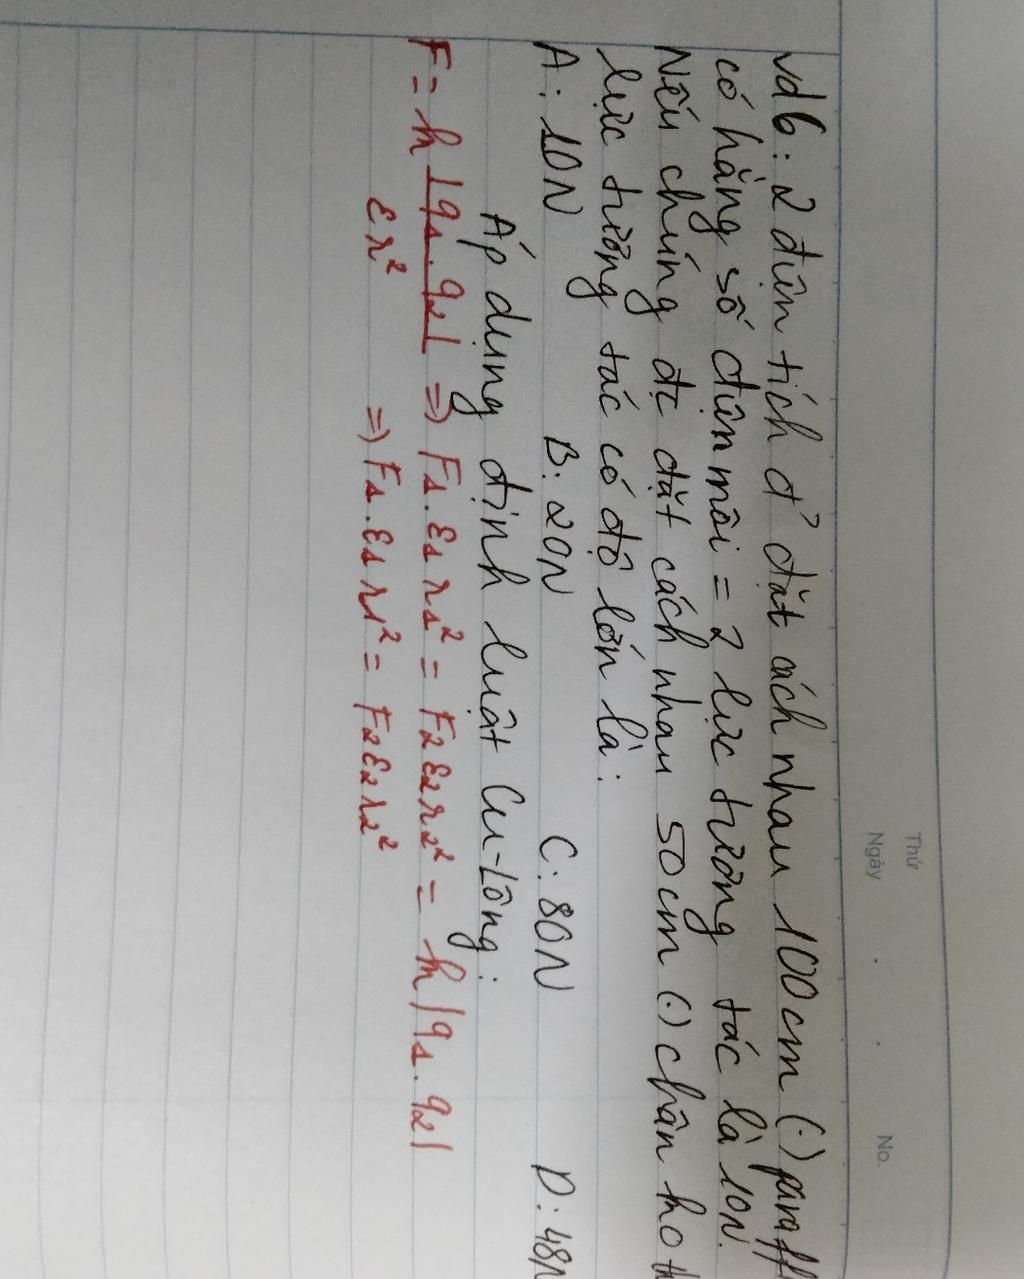 Thứ
Ngày
No.
vd6: 2 điện tích đ' đặt cách nhau 100cm (.) paraff
có hằng số điện môi = 2 lực tương tác là 10N.
Nếu chúng đc đặt cách nhau 50cm (.) chân ho
lực tương tác có độ lớn là:
A: 10N B: 20N C: 80N D: 48N
Áp dụng định luật Cu-Lông:
F = k |q1.q2| => F1.ε1r1² = F2ε2r2² = k|q1.q2|
εr²
=> F1.ε1r1² = F2ε2r2²